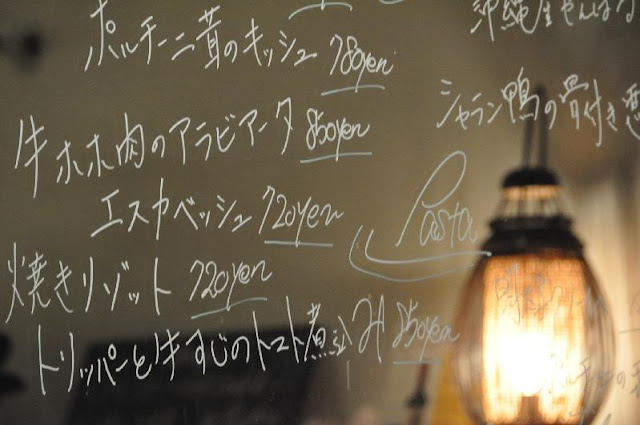 ポルチーニ茸のキッシュ 780yen
牛ホホ肉のアラビアータ 850yen
エスカベッシュ 720yen
焼きリゾット 720yen
トリッパーと牛すじのトマト煮込み 850yen
沖縄生もずく
シャラン鴨の骨付き
Pasta